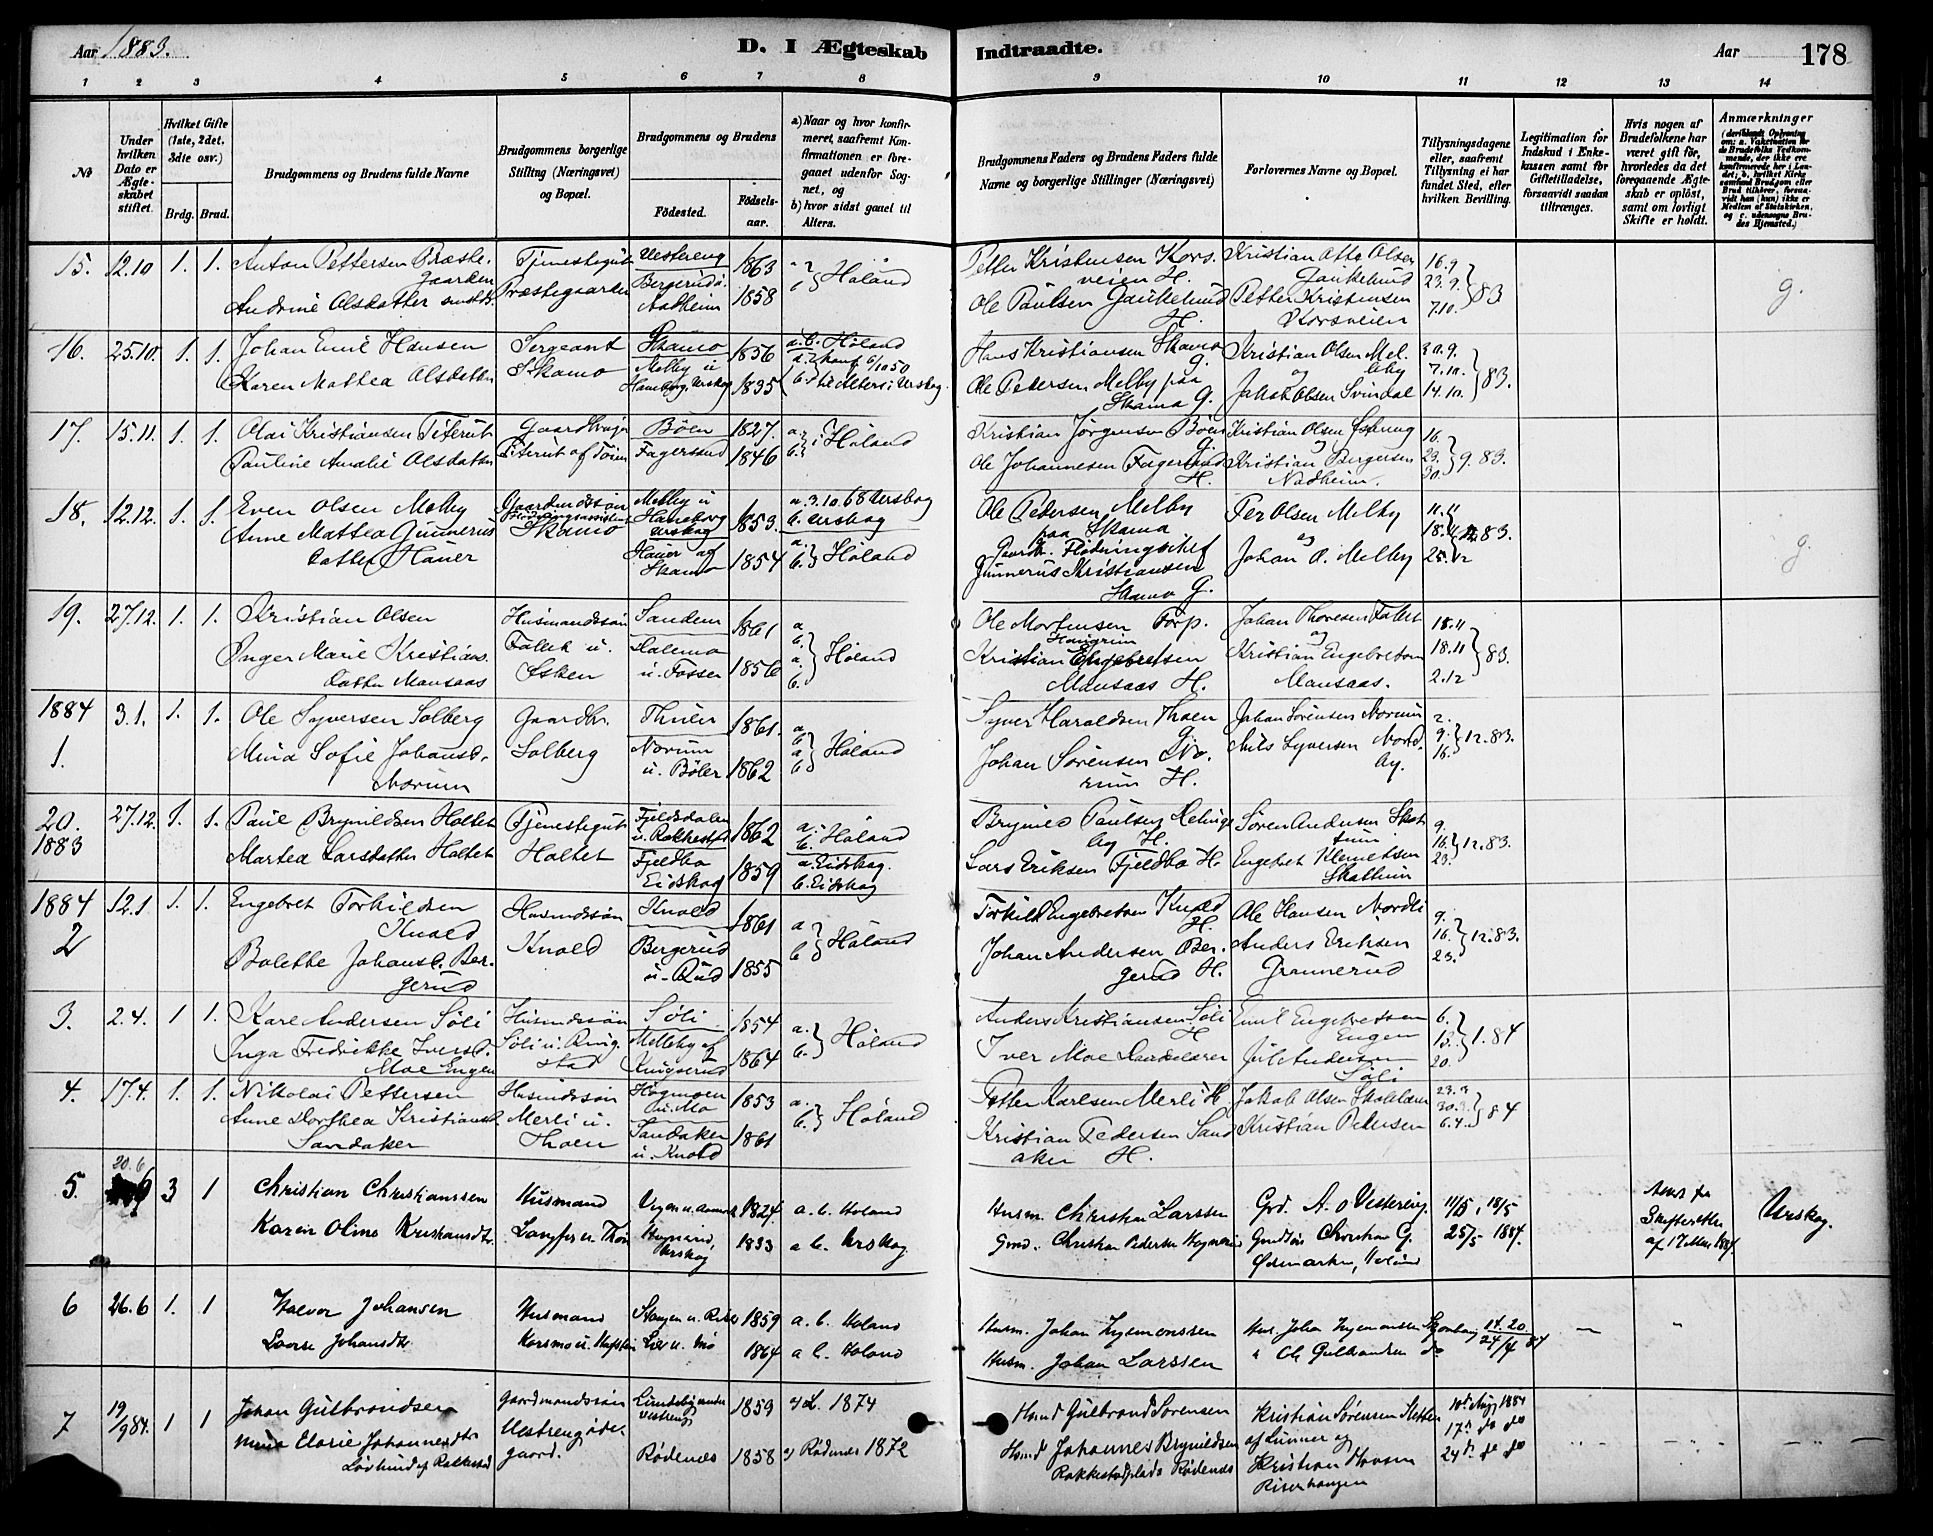 Aar 1883.
D. I Ægteskab
Indtraadte.
Aar
178
1 2 3 4 5 6 7 8 9 10 11 12 13 14
№
Under hvilken Dato er Ægteskabet stiftet.
Hvilket Gifte (1ste, 2det. 3die osv.)
Brdg. Brud.
Brudgommens og Brudens fulde Navne
Brudgommens borgerlige Stilling (Næringsvei) og Bopæl.
Brudgommens og Brudens
Fødested.
Fødselsaar.
a) Naar og hvor konfirmeret, saafremt Konfirmationen er foregaaet udenfor Sognet, og
b) hvor sidst gaaet til Alters.
Brudgommens Faders og Brudens Faders fulde Navne og borgerlige Stillinger (Næringsvei)
Forlovernes Navne og Bopæl.
Tillysningsdagene eller, saafremt Tillysning ei har fundet Sted, efter hvilken Bevilling.
Legitimation for Indskud i Enkekassen samt for Giftetilladelse, forsaavidt saadan tiltrænges.
Hvis nogen af Brudefolkene har været gift før, hvorledes da det foregaaende Ægteskab er opløst, samt om lovligt Skifte er holdt.
Anmærkninger
15. 12.10 1. 1. Anton Pettersen Præstegaarden
Andrine Olsdatter smstds.
Tjenestegut Præstegaarden
Vestereng 1863
Bergerud u. Aadheim 1858
Høland
Petter Kristensen Korsveien H.
Ole Paulsen Gaukelund H.
Kristian Otto Olsen Gaukelund
Petter Kristensen Korsveien
16.9 23.9. 7.10. 83
g.
16. 25.10. 1. 1. Johan Emil Hansen
Karen Mattea Olsdatter
Sergeant Skamo
Skamo 1856
Melby u Haneborg Urskog 1835
a.b. Høland
a. konf. 6/10 50
b. til Alters i Urskog.
Hans Kristiansen Skamo G.
Ole Pedersen Melby paa Skama G.
Kristian Olsen Melby
og Jakob Olsen Svindal
30.9. 7.10. 14.10. 83.
17. 15.11. 1. 1. Olai Kristiansen Titerut
Pauline Amalie Olsdatter
Gaardbruger Titerut af Toien
Böen 1827.
Fagerstad 1846
a. b. i Høland
Kristian Jörgensen Böen G.
Ole Johannesen Fagerlund H.
Kristian Olsen Østeng
og Kristian Bergersen Nadheim.
16. 23. 30. 9. 83.
18. 12.12. 1. 1. Even Olsen Melby
Anne Mattea Gunnerusdatter Hauer
Gaardmandssön Flödningsassistent Skamo
Melby u Haneborg Urskog 1853.
Hauer af Skamo 1854
a. 3.10.68 Urskog
b. Urskog
a. b. Høland
Ole Pedersen Melby paa Skama
Gaardb. Flödningschef Gunnerus Kristiansen Skamo G.
Per Olsen Melby
og Johan O. Melby
11.11 18.11 25. 83.
g.
19. 27.12. 1. 1. Kristian Olsen
Inger Marie Kristiansdatter Mansaas
Husmandssön Fallet u. Esken
Sandem 1861
Dalemo u. Fosser 1856
a b. a. b. Høland
Ole Mortensen Torp.
Kristian Engebretsen Mansaas H.
Johan Thoresen Fallet
og Kristian Engebretsen Mansaas.
18.11 18.11 2.12 83.
1884
1. 3.1. 1. 1. Ole Syversen Solberg
Mina Sofie Johansd. Norum
Gaardbr. Solberg
Thuen 1861.
Norum u. Böler 1862
a b a b Høland
Syver Haraldsen Thoen G.
Johan Sörensen Norum H.
Johan Sörensen Norum
Nils Syversen Nordby.
2. 9. 16. 12.83.
20. 1883 27.12. 1. 1. Paul Brynildsen Holtet
Martea Larsdatter Holtet
Tjenestegut Holtet
Fjeldsdalen u. Rakkestad 1862
Fjeldbo Eidskog 1859
a. b. Høland
a. Eidskog.
b. Eidskog
Brynild Paulsen H.
Lars Eriksen Fjeldbo H.
Sören Andersen Skattum
Engebret Klemetsen Skattum
9. 16. 23. 12.83.
1884
2 12.1 1. 1. Engebret Torkildsen Knold
Bolette Johansd. Bergerud
Husmandssön Knold
Knold 1861
Bergerud u. Rud 1855
a b Høland
Torkild Engebretsen Knold H.
Johan Andersen Bergerud H.
Ole Hansen Nordli
Anders Eriksen Grannerud
9. 16. 23. 12.83.
3. 2.4. 1 1. Karl Andersen Söli
Inga Fredrikke Iversd. Moe Engen
Husmandssön Söli u. Ringstad
Söli 1854
Melleby af Kringserud 1864
a. b. Høland
Anders Kristiansen Söli H
Iver Moe Landelærer
Emil Engebretsen Engen
Jul Andersen Söli
6. 13. 20. 1.84
4. 17.4. 1. 1. Nikolai Pettersen
Anne Dorthea Kristiansd. Sandaker
Husmandssön Merli u. Thoen
Högmoen u. Mo 1853
Sandaker u. Knold 1861
a. b. Høland
Petter Karlsen Merli H.
Kristian Pedersen Sandaker H.
Jakob Olsen
Kristian Pedersen
23.3 30.3. 6.4. 84
5. 20.6 3 1 Christian Christianssen
Karen Oline Kristiansdtr.
Husmand
1824. a. b. Høland
Urskog 1833 a b. Urskog
Husm. Christian Larssen
Gmd. Christian Pedersen
Grd. A. O Vestereng.
Christian G. Ødemarken, Høland
11/5, 18/5 25/5 1884.
Skifteretten af 17 Mai 1884.
Urskog.
6 26.6 1. 1 Halvor Johansen
Lovise Johansdtr
Husmand
1859 a. b. Høland
Lier u. Mo 1864 a b. Høland
Husm. Johan Sygmonssen
Husm. Johan Larssen
Hus. Johan
Ole Gulbrandsen do
14. 20. 24/4 84
7 19/9 84. 1 1 Johan Gulbrandsen
Johannesdtr
Gaardmandssön Vestreng ödegaard.
Lundeby under Vestreng 1859 H. 1874
Rödenes 1858 Rödenes 1872
Hsmd Gulbrand Sørensen
Hsmd Johannes Brynildsen Rakkestadplads Rödenes
Kristian Sørensen Sletten af Lunner og
Kristian Hansen Riserhaugen
10de Aug. 1884
17de do do
24de do do